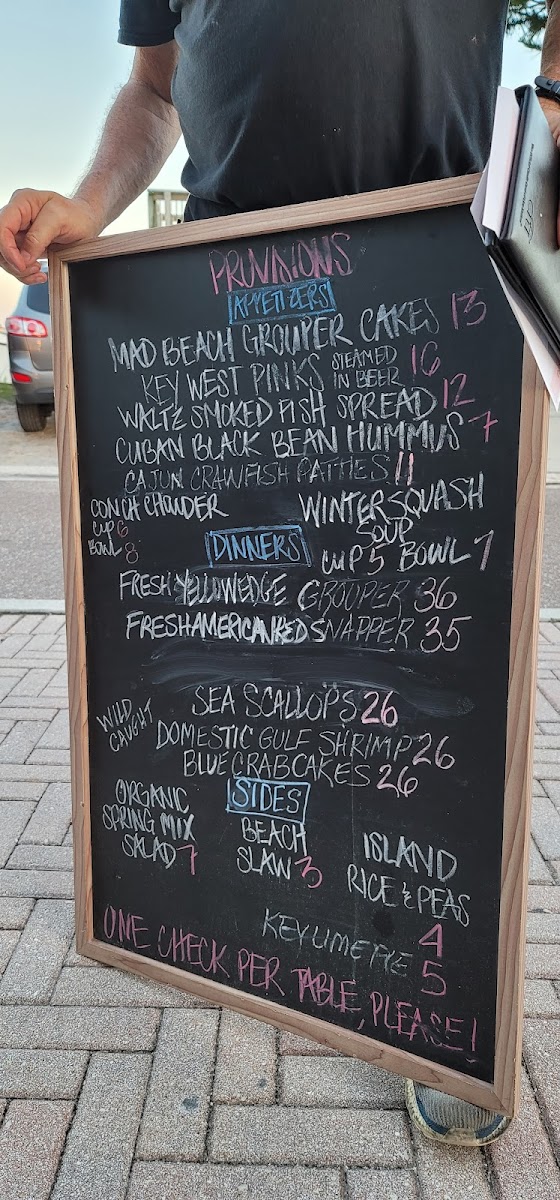 PROVISIONS
APPETIZERS
MAD BEACH GROUPER CAKES 13
KEY WEST PINKS STEAMED IN BEER 16
WALTZ SMOKED FISH SPREAD 12
CUBAN BLACK BEAN HUMMUS 7
CAJUN CRAWFISH PATTIES 11
CONCH CHOWDER
CUP 6
BOWL 8
WINTER SQUASH
SOUP
CUP 5 BOWL 7
DINNERS
FRESH YELLOWEDGE GROUPER 36
FRESH AMERICAN RED SNAPPER 35
WILD
CAUGHT
SEA SCALLOPS 26
DOMESTIC GULF SHRIMP 26
BLUE CRABCAKES 26
SIDES
ORGANIC
SPRING MIX
SALAD 7
BEACH
SLAW 3
ISLAND
RICE & PEAS
4
KEY LIME PIE 5
ONE CHECK PER TABLE, PLEASE!